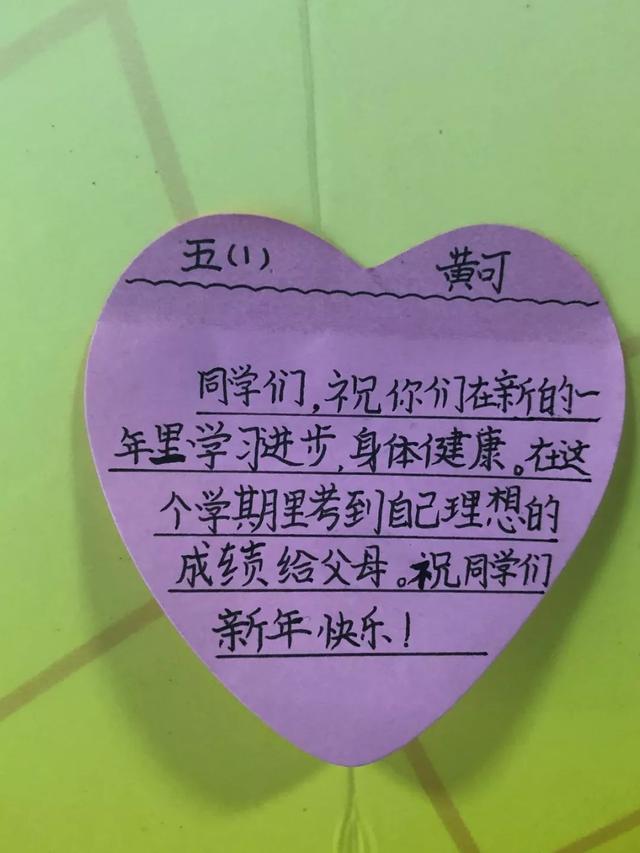 五(1) 黄可
同学们,祝你们在新的一
年里学习进步,身体健康。在这
个学期里考到自己理想的
成绩给父母。祝同学们
新年快乐!